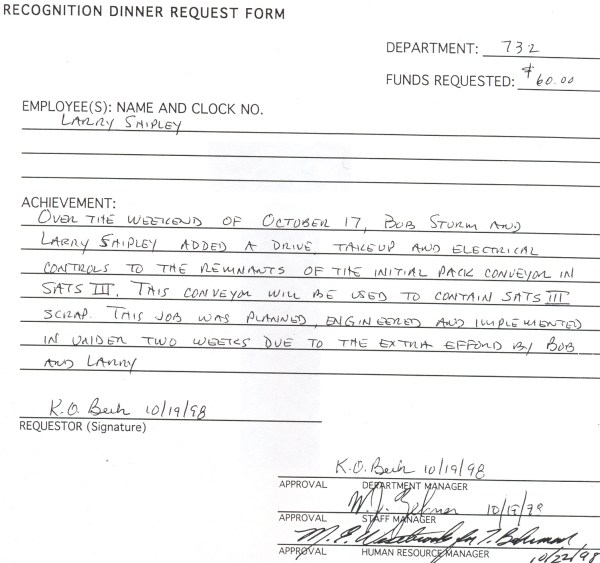 RECOGNITION DINNER REQUEST FORM
DEPARTMENT: 732
FUNDS REQUESTED: $60.00
EMPLOYEE(S): NAME AND CLOCK NO.
LARRY SHIPLEY
ACHIEVEMENT:
OVER THE WEEKEND OF OCTOBER 17, BOB STURM AND
LARRY SHIPLEY ADDED A DRIVE, TAKEUP AND ELECTRICAL
CONTROLS TO THE REMNANTS OF THE INITIAL PACK CONVEYOR IN
SATS III. THIS CONVEYOR WILL BE USED TO CONTAIN SATS III
SCRAP. THIS JOB WAS PLANNED, ENGINEERED AND IMPLEMENTED
IN UNDER TWO WEEKS DUE TO THE EXTRA EFFORD BY BOB
AND LARRY
K.O. Beck 10/19/98
REQUESTOR (Signature)
K.O. Beck 10/19/98
APPROVAL DEPARTMENT MANAGER
W. J. 10/19/98
APPROVAL STAFF MANAGER
M. P. for T.
APPROVAL HUMAN RESOURCE MANAGER
10/22/98